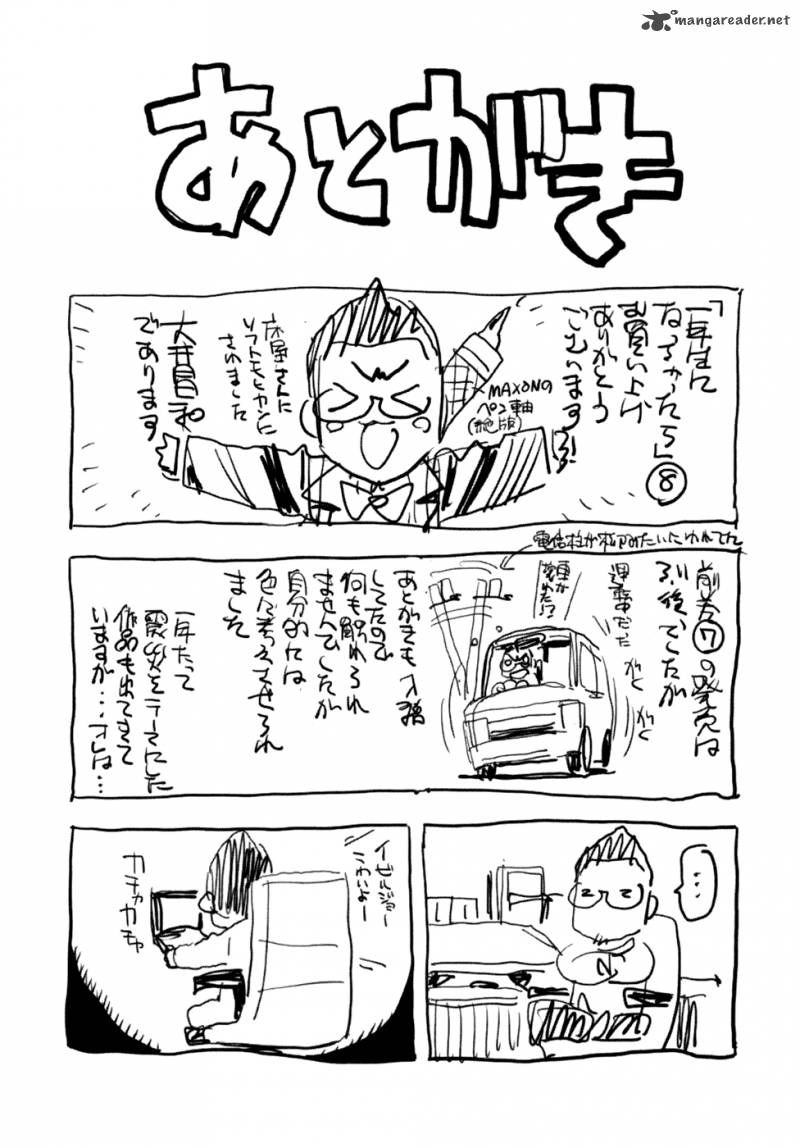 mangareader.net
あとがき
「一年生に
なっちゃったら」⑧
お買い上げ
ありがとう
ございますっ!
MAXONの
ペン軸
(絶版)
床屋さんに
ソフトモヒカンに
されました
大井昌和
であります
電信柱が
みたいにゆれてた
前巻⑦の発売は
でしたが
運転中だった
ガク
ガク
あとがきも入稿
してたので
何も触れられ
ませんでしたが
自分的には
色々考えさせられ
ました
一年たって
震災をテーマにした
作品も出てきて
いますが・・・オレは…
…
イゼルジョー
こわいよー
カチャカチャ